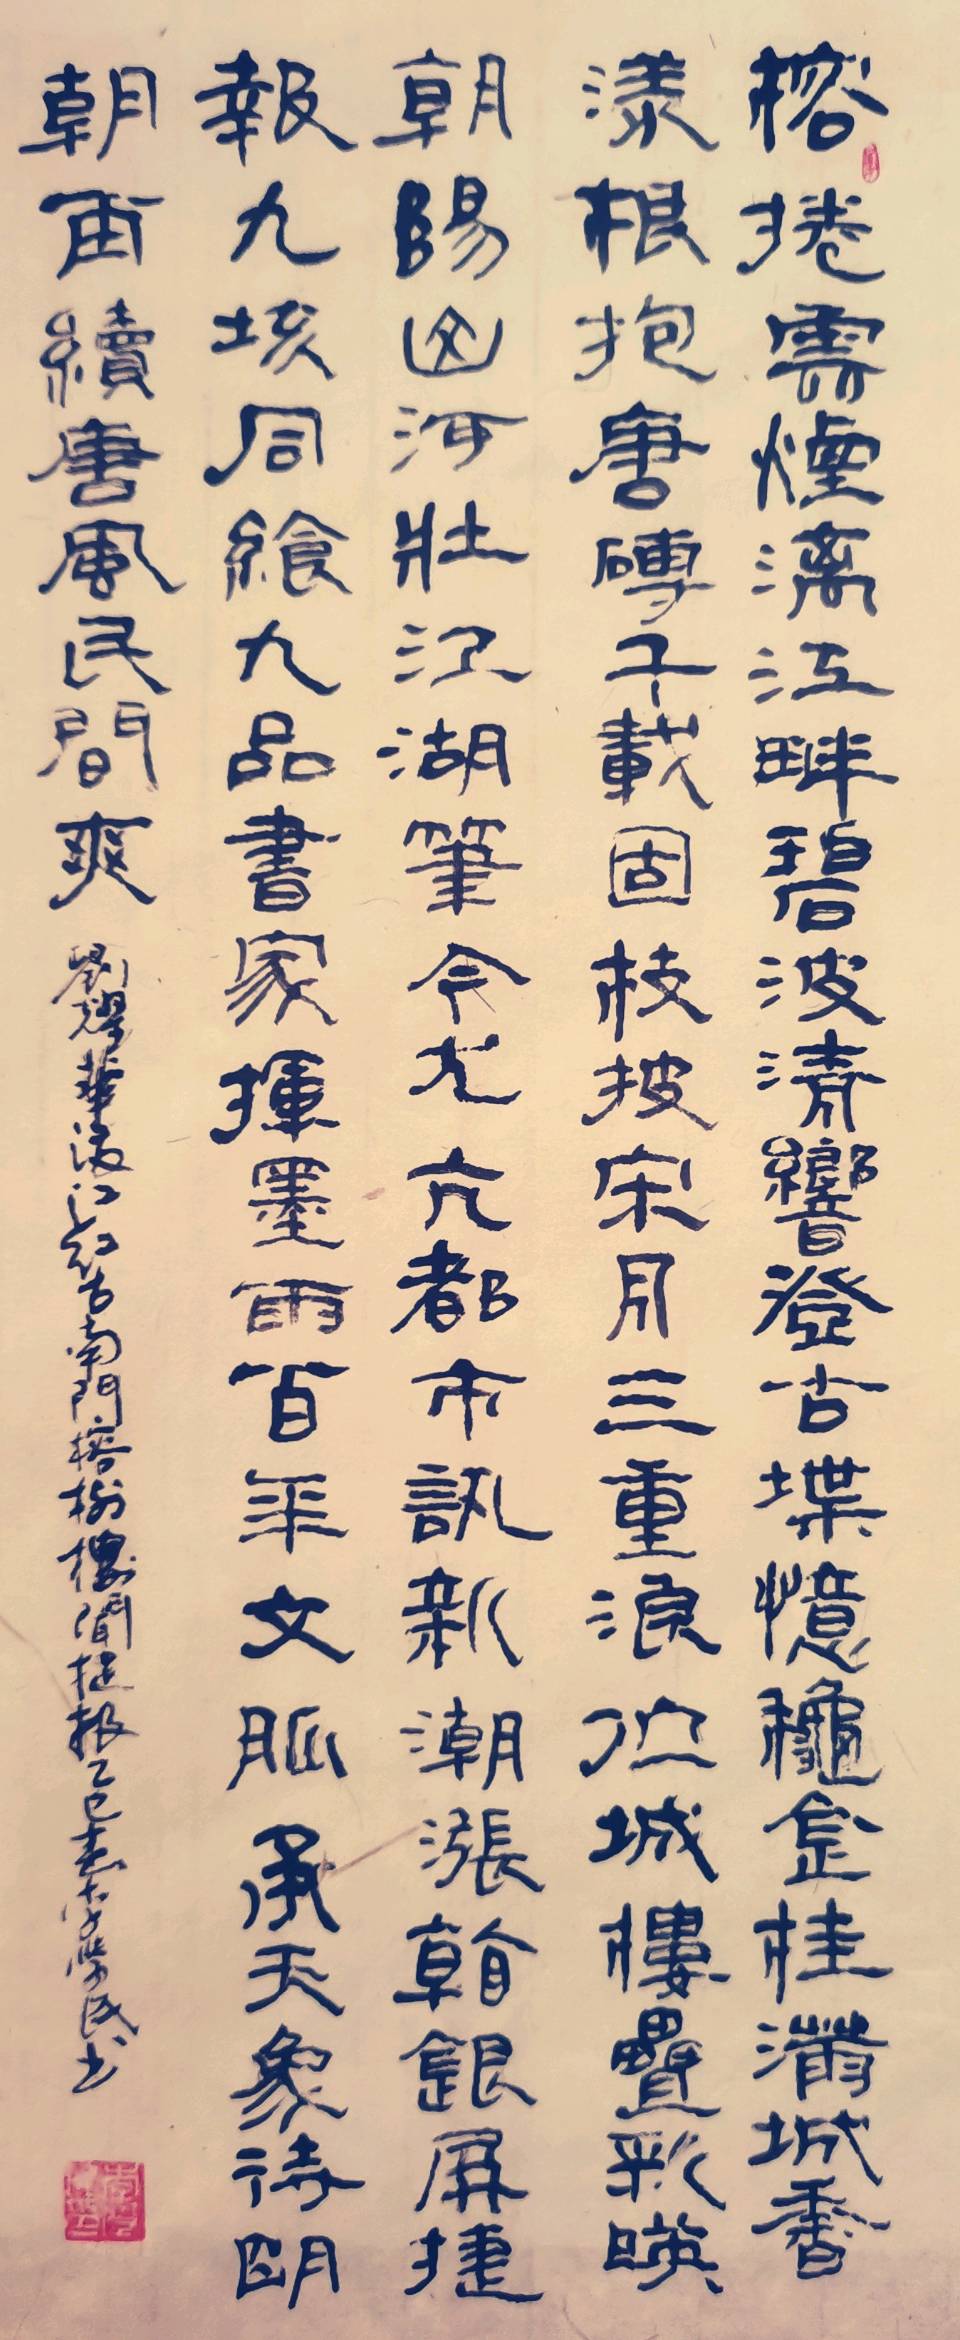 榕捲雲煙漓江畔碧波清響登古堞憶龝金桂滿城香
漾根抱唐磚千載固枝披宋月三重浪位城樓疊彩暎
朝陽山河壯江湖筆今尤亢都市訊新潮漲翰銀屏捷
報九垓同飨九品書家揮墨雨百年文脈承天象待明
朝再續唐風民間爽
劉耀華漓江和古南門榕樹樓聞捷報乙巳 書